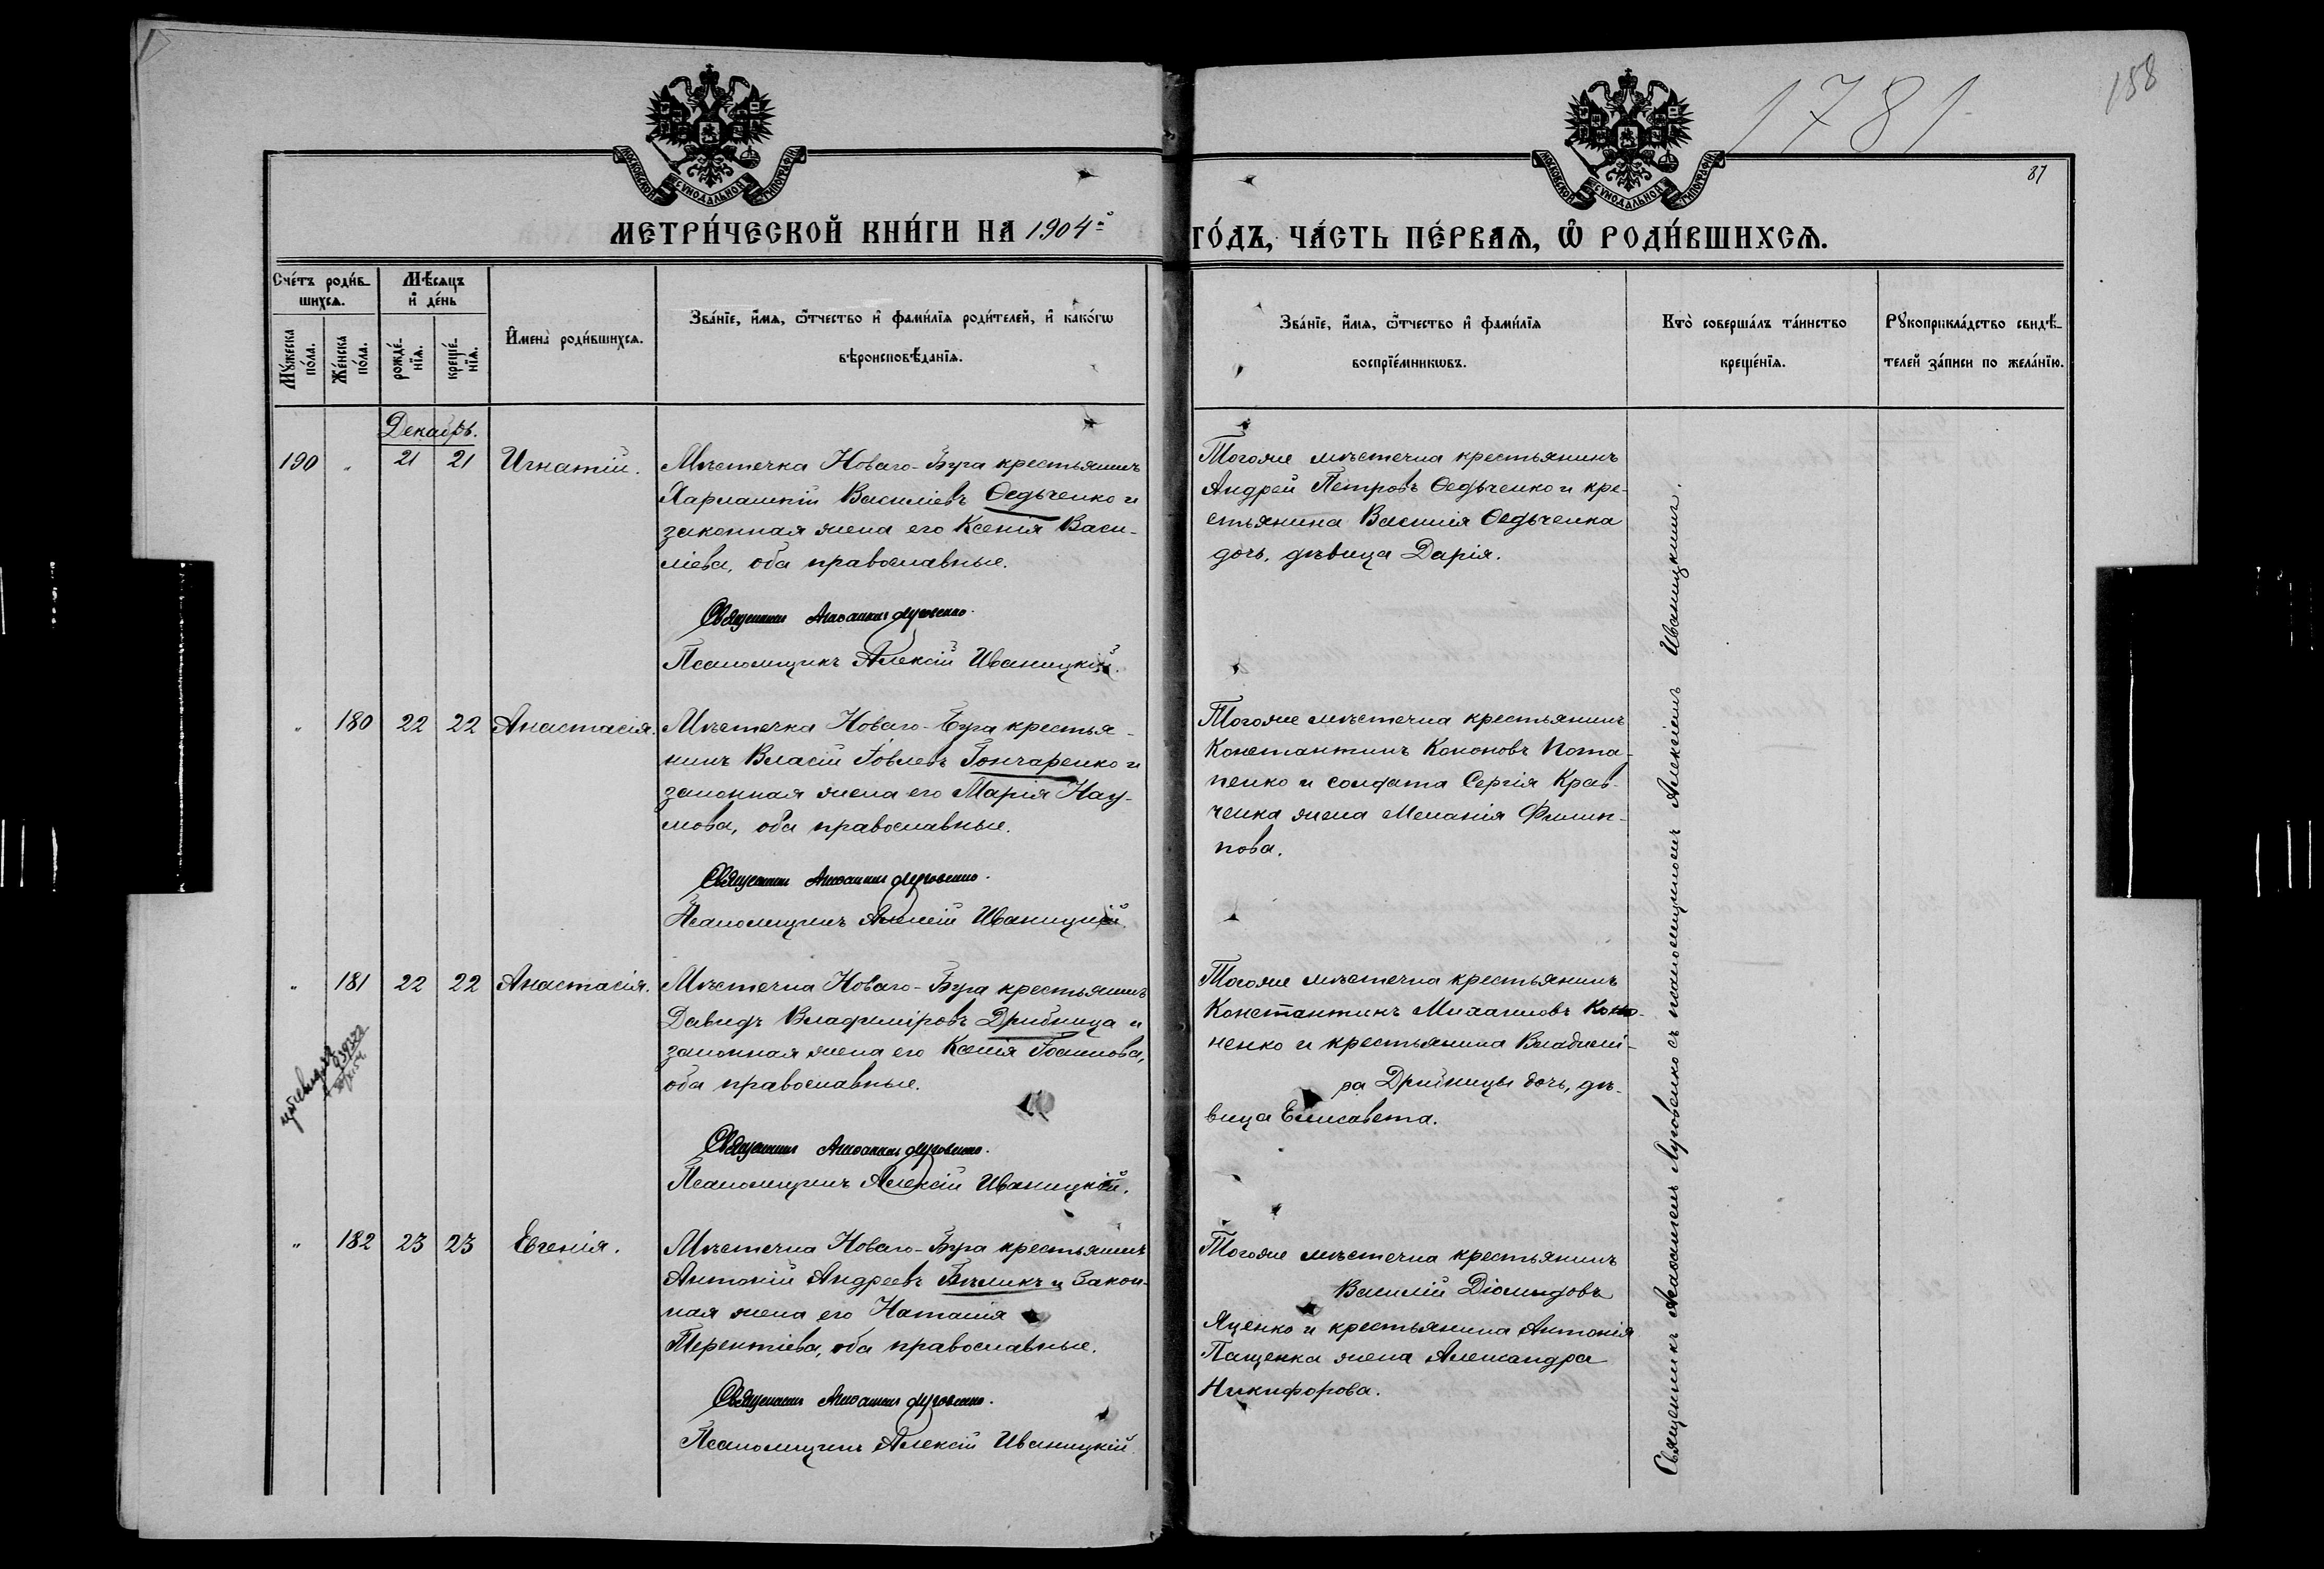 1781
158
87
МОСКОВСКОЙ СѴНОДАЛЬНОЙ ТИПОГРАФІИ
МОСКОВСКОЙ СѴНОДАЛЬНОЙ ТИПОГРАФІИ
МЕТРИ́ЧЕСКОЙ КНИ́ГИ НА 1904й
ГО́ДЪ, ЧА́СТЬ ПЕ́РВАѦ, Ѽ РОДИ́ВШИХСѦ.
Сче́тъ роди́в-
шихсѧ.
Мѣ́сѧцъ
и҆ де́нь
Мꙋ́жеска
по́ла.
Же́нска
по́ла.
рожде́-
нїѧ.
креще́-
нїѧ.
И҆мена̀ роди́вшихсѧ.
Зва́нїе, и҆́мѧ, ѻ҆́тчество и҆ фами́лїѧ роди́телей, и҆ како́гѡ
вѣроисповѣ́данїѧ.
Зва́нїе, и҆́мѧ, ѻ҆́тчество и҆ фами́лїѧ
воспрїе́мникѡвъ.
Кто̀ соверша́лъ та́инство
креще́нїѧ.
Рꙋкоприкла́дство свидѣ́-
телей за́писи по жела́нїю.
Декабрь.
190 " 21 21 Игнатій.
Мѣстечка Новаго-Буга крестьянинъ
Харлампій Василіевъ Ѳедьченко и
законная жена его Ксенія Васи-
ліева, оба православные.
Священникъ Аѳанасій Луговенко.
Псаломщикъ Алексій Иваницкій.
Тогоже мѣстечка крестьянинъ
Андрей Петровъ Ѳедьченко и кре-
стьянина Василія Ѳедьченка
дочь, дѣвица Дарія.
" 180 22 22 Анастасія.
Мѣстечка Новаго-Буга крестья-
нинъ Власій Іовлевъ Гончаренко и
законная жена его Марія Нау-
мова, оба православные.
Священникъ Аѳанасій Луговенко.
Псаломщикъ Алексій Иваницкій.
Тогоже мѣстечка крестьянинъ
Константинъ Кононовъ Пота-
пенко и солдата Сергія Крав-
ченка жена Меланія Филип-
пова.
" 181 22 22 Анастасія.
Мѣстечка Новаго-Буга крестьянинъ
Давидъ Владиміровъ Дрибница и
законная жена его Ксенія Іоаннова,
оба православные.
Священникъ Аѳанасій Луговенко.
Псаломщикъ Алексій Иваницкій.
Тогоже мѣстечка крестьянинъ
Константинъ Михаиловъ Коно-
ненко и крестьянина Владимі-
ра Дрибницы дочь, дѣ-
вица Елисавета.
" 182 23 23 Евгенія.
Мѣстечка Новаго-Буга крестьянинъ
Антоній Андреевъ Бѣликъ и закон-
ная жена его Наталія
Терентіева, оба православные.
Священникъ Аѳанасій Луговенко.
Псаломщикъ Алексій Иваницкій.
Тогоже мѣстечка крестьянинъ
Василій Діомидовъ
Яценко и крестьянина Антонія
Пащенка жена Александра
Никифорова.
Священникъ Аѳанасіемъ Луговенко съ псаломщикомъ Алексіемъ Иваницкимъ.